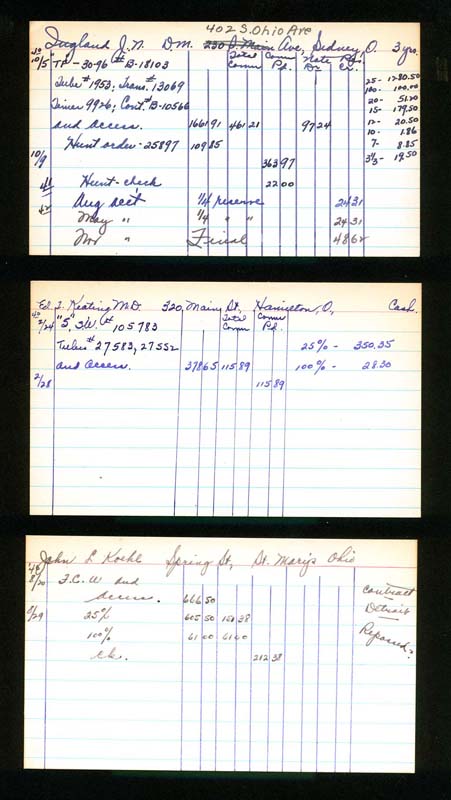 402 S. Ohio Ave
England J. N. DM. 230 S. Main Ave, Sidney, O. 3 yrs.
40 Total Comm Comm Pd. Note Dr. Res. Cr.
10/5 "TP"-30-96 # B-18103 25- 1280.50
Tube # 1953, Trans. # 13069 100- 100.00
Timer 9926, Cont. # B-10566 20- 51.20
15- 179.50
and access. 1661 91 461 21 97 24 12- 20.50
10- 1.86
Hunt order-25897 109 85 7- 8.85
10/9 363 97 3 1/3- 19.50
Hunt-check 22 00
Aug acc't 1/4 reserve 24 31
May " 1/4 " " 24 31
Nov " Final 48 62
Ed. J. Keating M.D. 320, Main St, Hamilton, O, Cash.
40 Total Comm Comm Pd.
2/24 "S", 3W. # 105783
Tubes # 27583, 27552 25% - 350.35
and access. 378 65 115 89 100% - 28.30
2/28 115 89
John L Koehl Spring St, St. Marys Ohio
40
8/20 F.C.W and
access. 666 50 Contract
9/29 25% 605 50 151 38 Detroit
100% 61 00 61 00 Repossed.
ck. 212 38